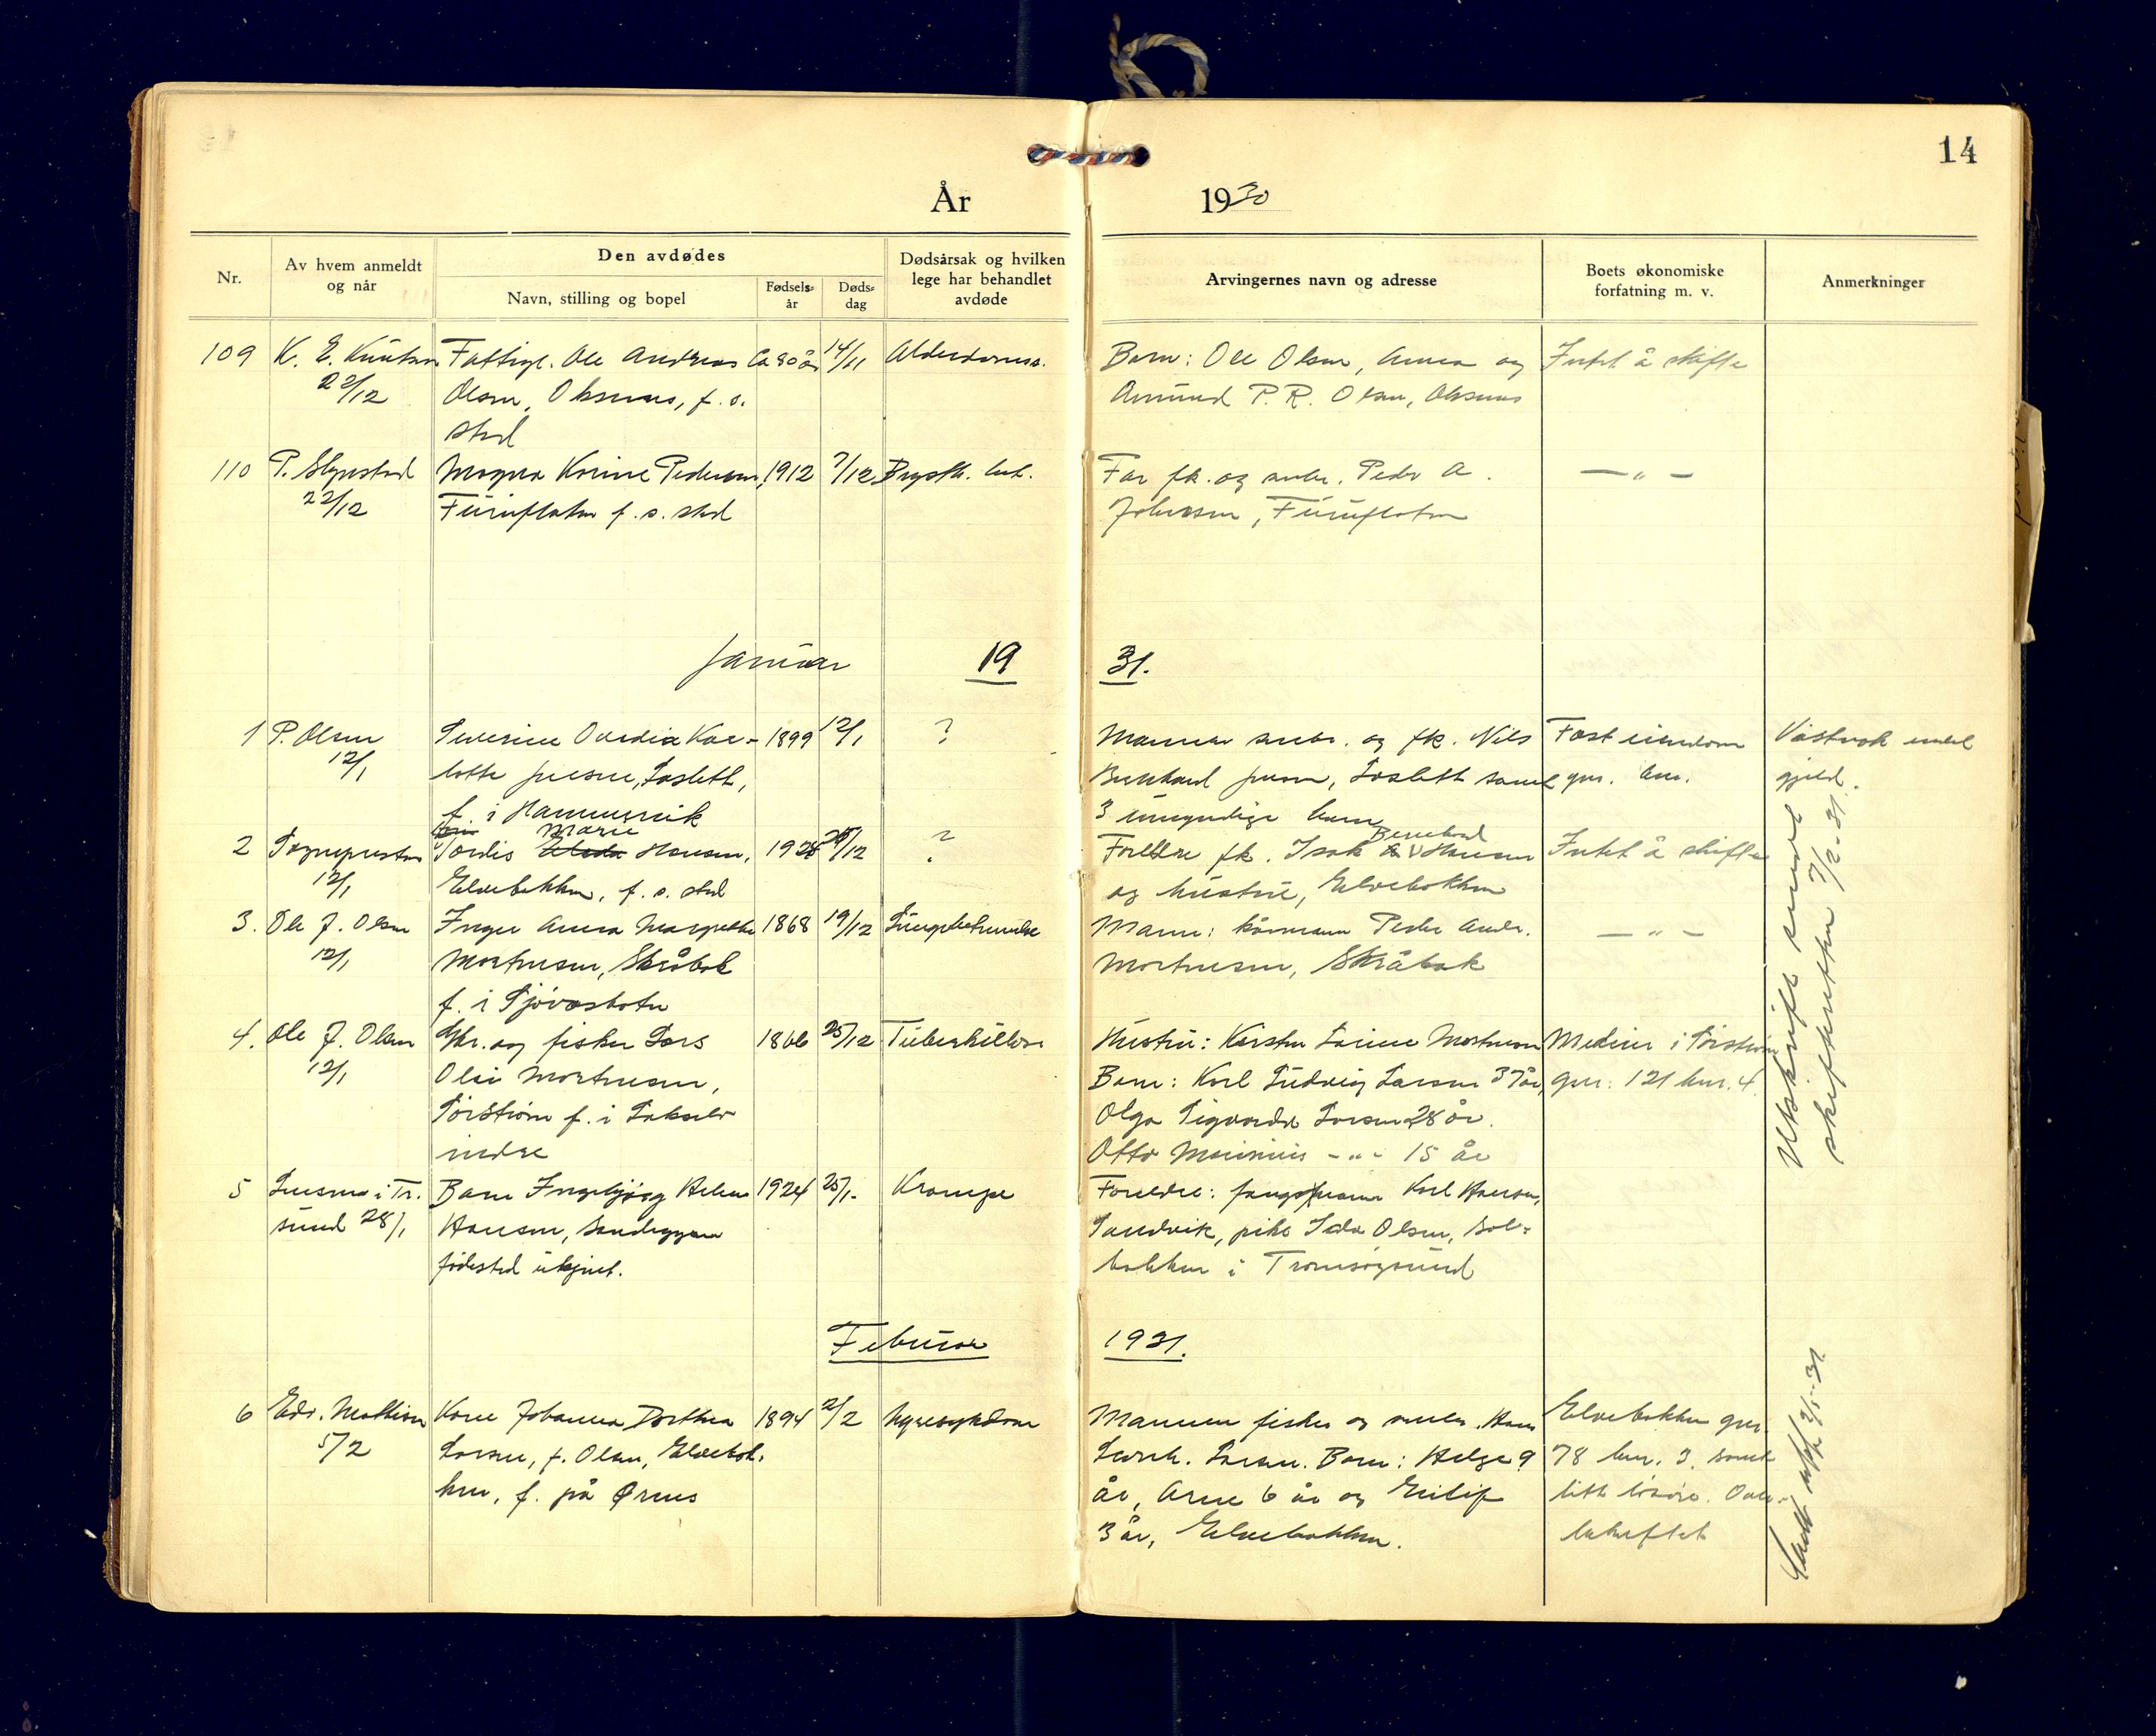 14
År 1930
Nr.
Av hvem anmeldt og når
Den avdødes
Navn, stilling og bopel
Fødsels-år
Døds-dag
Dødsårsak og hvilken lege har behandlet avdøde
Arvingernes navn og adresse
Boets økonomiske forfatning m. v.
Anmerkninger
109 K. E. Knutsen Fattigl. Ole Andreas Ca 80 år 14/11 Alderdomss. Barn: Ole Olsen, Anna og Intet å skifte
22/12 Olsen, Oksnes, f. s. Amund P. R. Olsen, Oksnes
sted
110 P. Slyestad Magna Korine Pedersen, 1912 7/12 Brysth. bet. Far fk. og småbr. Peder A. — " —
22/12 Furuflaten f. s. sted Johansen, Furuflaten
Januar 19 31.
1 P. Olsen Severine Ovedia Kar- 1899 12/1 ? Mannen småbr. og fk. Nils Fast eiendom Våstrak endel
12/1 lotte Jensen, Lasleth, Bernhard Jensen, Lasleth samt gnr. bnr. gjeld.
f. i Hamnesvik 3 umyndige barn
2 Sognepresten Tordis Marie Hansen, 1928 29/12 ? Foreldre fk. Isak Berntead Hansen Intet å skifte
12/1 Elvebakken, f. s. sted og hustru, Elvebakken
3. Ole J. Olsen Inger Anna Margrethe 1868 19/12 Lungebetendelse Mann: kårmann Peder Andr. — " —
12/1 Mortensen, Skråbak Mortensen, Skråbak
f. i Sjøvasbotn
4. Ole J. Olsen Gbr. og fisker Lars 1866 25/12 Tuberkulose Hustru: Kirsten Larine Mortensen Medeier i Sørstrøm
12/1 Olai Mortensen, Barn: Karl Ludvig Larsen 37 år, gnr. 121 bnr. 4.
Sørstrøm f. i Lakselv Olga Sigvarda Larsen 28 år.
indre Otto Marinius - " - 15 år
5 Lensm. i Tr. Barn Ingebjørg Helene 1924 25/1. Krampe Foreldre: fangstmann Karl Hansen,
sund 28/1 Hansen, Sandeggen Sandvik, pike Ida Olsen, Sol-
fødested ukjent. bakken i Tromsøysund
Utskrift sendt
skifteretten 7/2-31.
Februar 1931.
6 Edv. Mathisen Kone Johanna Dorthea 1894 2/2 Nyresykdom Mannen fisker og småbr. Hans Elvebakken gnr.
5/2 Larsen, f. Olsen, Elvebak- Larsen. Barn: Helge 9 78 bnr. 3. samt
ken, f. på Ørnes år, Arne 6 år og Eilif litt løsøre. Over-
3 år, Elvebakken. beheftet